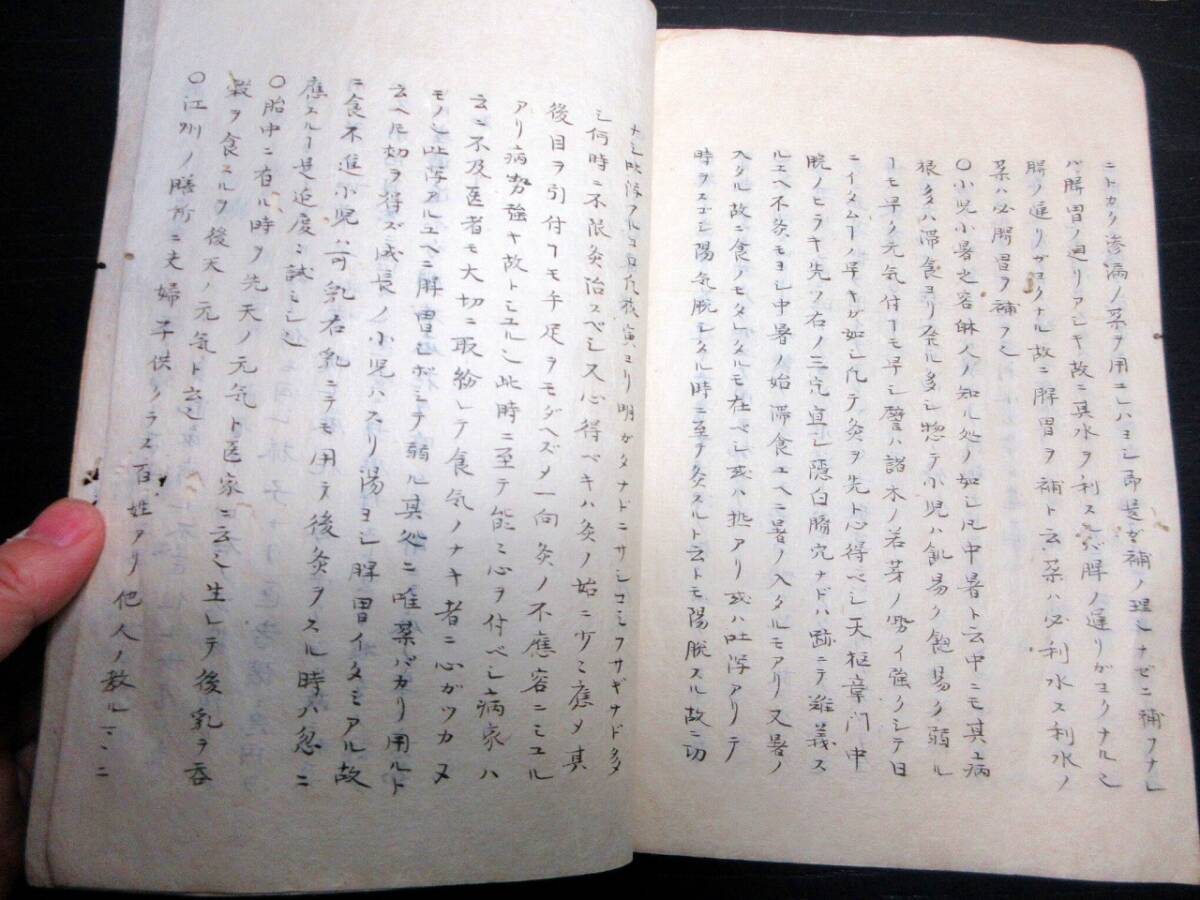 ニトカク滲漏ノ薬ヲ用ユハヨシ即是ガ補ノ理シナゼニ補フナレ
バ脾胃ノ廻リアシキ故ニ其水ヲ利スレバ脾ノ運リガヨクナルシ
脾ノ運リガヨクナル故ニ脾胃ヲ補ト云薬ハ必利水ス利水ノ
薬ハ必脾胃ヲ補フシ
〇小児小暑之客 人ノ知ル処ノ如シ凡中暑ト云中ニモ其上病
根多ハ滞食ヨリ発ル多シ惣テ小児ハ飢易ク飽易ク弱ル
ーモ早ク元気付ーモ早シ譬ハ諸木ノ若芽ノ勢イ強クシテ日
ニイタムーノ早キガ如シ凡テ灸ヲ先ト心得ベシ天枢章門中
脘ノヒラキ先ツ右ノ三穴宜シ隠白臍穴ナドハ跡ニテ難義ス
ルユヘ不灸モヨシ中暑ノ始滞食ユヘニ暑ノ入タルモアリ又暑ノ
入タル故ニ食ノモタレタルモ在ベシ或ハ 熱アリ或ハ吐瀉アリテ
時ヲスゴシ陽気脱シタル時ニ至テ灸スルト云トモ陽脱スル故ニ功
ナシ吐瀉アルコロ凡夜寅ヨリ明ガタナドニサシコミフサギナド多
シ何時ニ不限灸治スベシ又心得ベキハ灸ノ始ニ少シ應メ其
後目ヲ引付ーモ手足ヲモダヘズメ一向灸ノ不應容ニミユル
アリ病勢強キ故トミエルシ此時ニ至テ能ミ心ヲ付ベシ病家ハ
云ニ不及医者モ大切ニ取紛レテ食気ノナキ者ニ心ガツカヌ
モノシ此瀉アルユヘニ脾胃シボシテ弱ル其処ニ唯薬バカリ用ルト
云ヘ𪜈効ヲ得ズ成長ノ小児ハスリ湯ヨシ脾胃イタミアル故
ニ食不進小児ハ可乳右乳ニテモ用テ後灸ヲスル時バ忽ニ
應スルー是迄度ミ試シシ
〇胎中ニ有ル時ヲ先天ノ元気ト医家ニ云シ生レテ後乳ヲ呑
穀ヲ食スルヲ後天ノ元気ト云シ
〇江州ノ膳所ニ夫婦子供クラス百姓アリ他人ノ教ルーニ